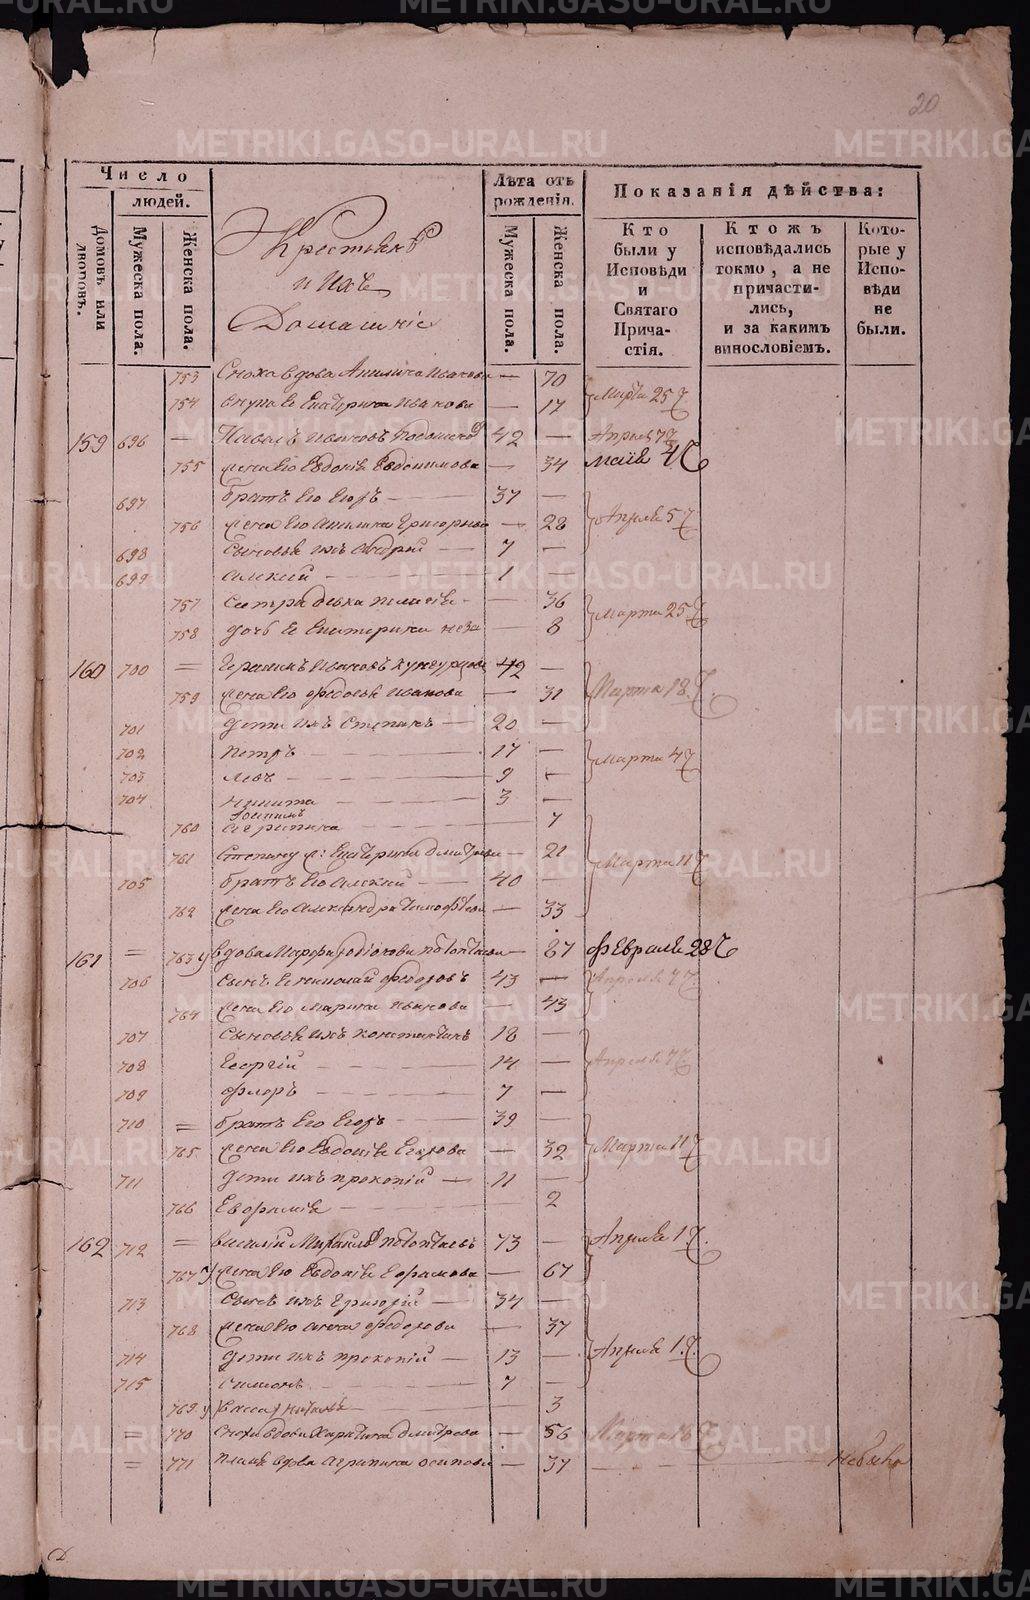 20
Число
людей.
Домовъ или дворовъ.
Мужеска пола.
Женска пола.
Крестьянъ
и Ихъ
Домашніе
Лѣта отъ рожденія.
Мужеска пола.
Женска пола.
Показанія дѣйства:
Кто были у Исповѣди и Святаго Причастія.
Ктожъ исповѣдались токмо, а не причастились, и за какимъ винословіемъ.
Которые у Исповѣди не были.
753 Сноха вдова Иванова — 70
754 внука Ея Екатерина Иванова — 17 Марта 25 Ч
159 696 — Павелъ Ивановъ 42 — Апреля 7 Ч
755 жена Его Евдокія Евдокимова — 34 Маія 4 Ч
697 братъ Его Егоръ — 37 —
756 жена Его Григорьева — 28 Апреля 5 Ч
698 Сыновья ихъ Андрей — 7 —
699 Алексей — 1 —
757 Сестра девка — 36
758 дочь Ея Екатерина неза — 8 Марта 25 Ч
160 700 = Герасимъ Ивановъ Кунгурцовъ 42 —
759 жена Его Федосья Иванова — 31 Марта 18 Ч
701 дети ихъ Степанъ — 20 —
702 Петръ — 17 —
703 Левъ — 9 — Марта 4 Ч
704 Никита — 3 —
760 — 7
761 Степану ж: Екатерина Дмитріева — 21 Марта 11 Ч
705 братъ Его Алексей — 40 —
762 жена Его Александра Тимофѣева — 33
161 = 763 у вдова Марфа Родіонова — 67 Февраля 28 Ч
706 Сынъ Ея Николай Федоровъ 43 — Апреля 7 Ч
764 жена Его Марина Иванова — 43
707 Сыновья ихъ Константинъ 18 —
708 Георгій — 14 — Апреля 7 Ч
709 Флоръ — 7 —
710 = братъ Его Егоръ — 39 —
765 жена Его Евдокія Егорова — 32 Марта 11 Ч
711 дети ихъ Прокопій — 11 —
766 Евфросинія — 2
162 712 = Василій Михайловъ 73 — Апреля 1 Ч
767 у жена Его Евдокія Ефремова — 67
713 Сынъ ихъ Григорій — 34 —
768 жена Его Анна Федорова — 37
714 дети ихъ Прокопій — 13 — Апреля 1 Ч
715 Симеонъ — 7 —
769 у Васса — 3
= 770 Сноха вдова Дмитріева — 56 Марта 18 Ч
= 771 вдова Агрипина Осипова — 37 — небыла
METRIKI.GASO-URAL.RU